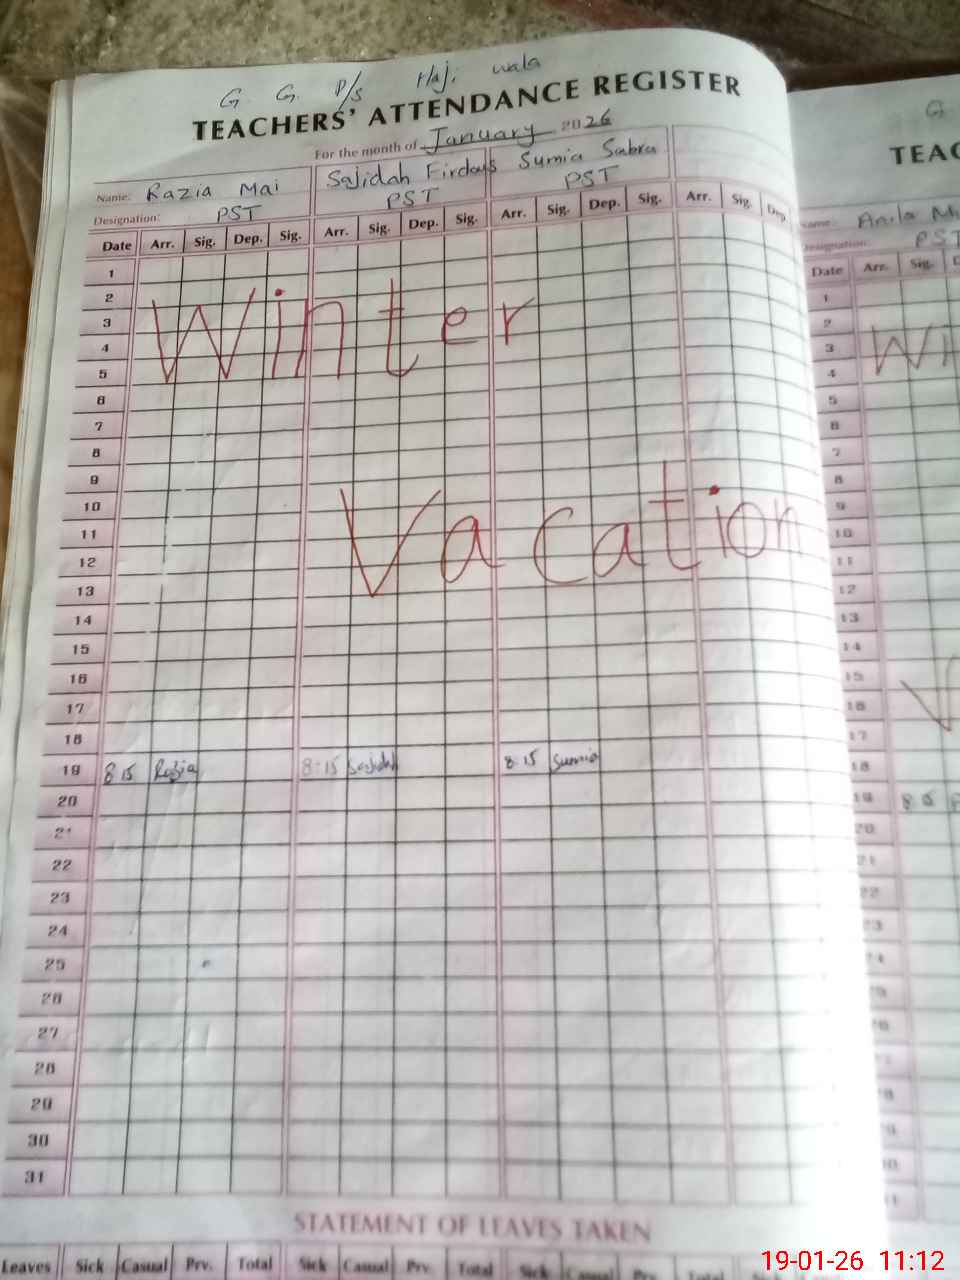 G. G. P/S Haji wala
TEACHERS' ATTENDANCE REGISTER
For the month of January 2026
Name: Razia Mai Sajidah Firdous Sumia Sabra
Designation: PST PST PST
Date Arr. Sig. Dep. Sig. Arr. Sig. Dep. Sig. Arr. Sig. Dep. Sig. Arr. Sig. Dep.
1
2
3
4
5
Winter
6
7
8
9
10
11
12
13
Vacation
14
15
16
17
18
19 8:15 Razia 8:15 Sajidah 8:15 Sumia
20
21
22
23
24
25
26
27
28
29
30
31
STATEMENT OF LEAVES TAKEN
Leaves Sick Casual Prv. Total Sick Casual Prv. Total Sick Casual
G
TEAC
Name: Anila
Designation: PST
Date Arr. Sig.
1
2
3
4
5
6
7
8
9
10
11
12
13
14
15
16
17
18
19
20
21
22
19-01-26 11:12